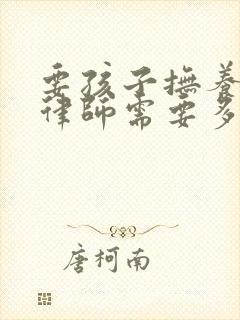 要孩子撫養
律師需要多
唐柯南